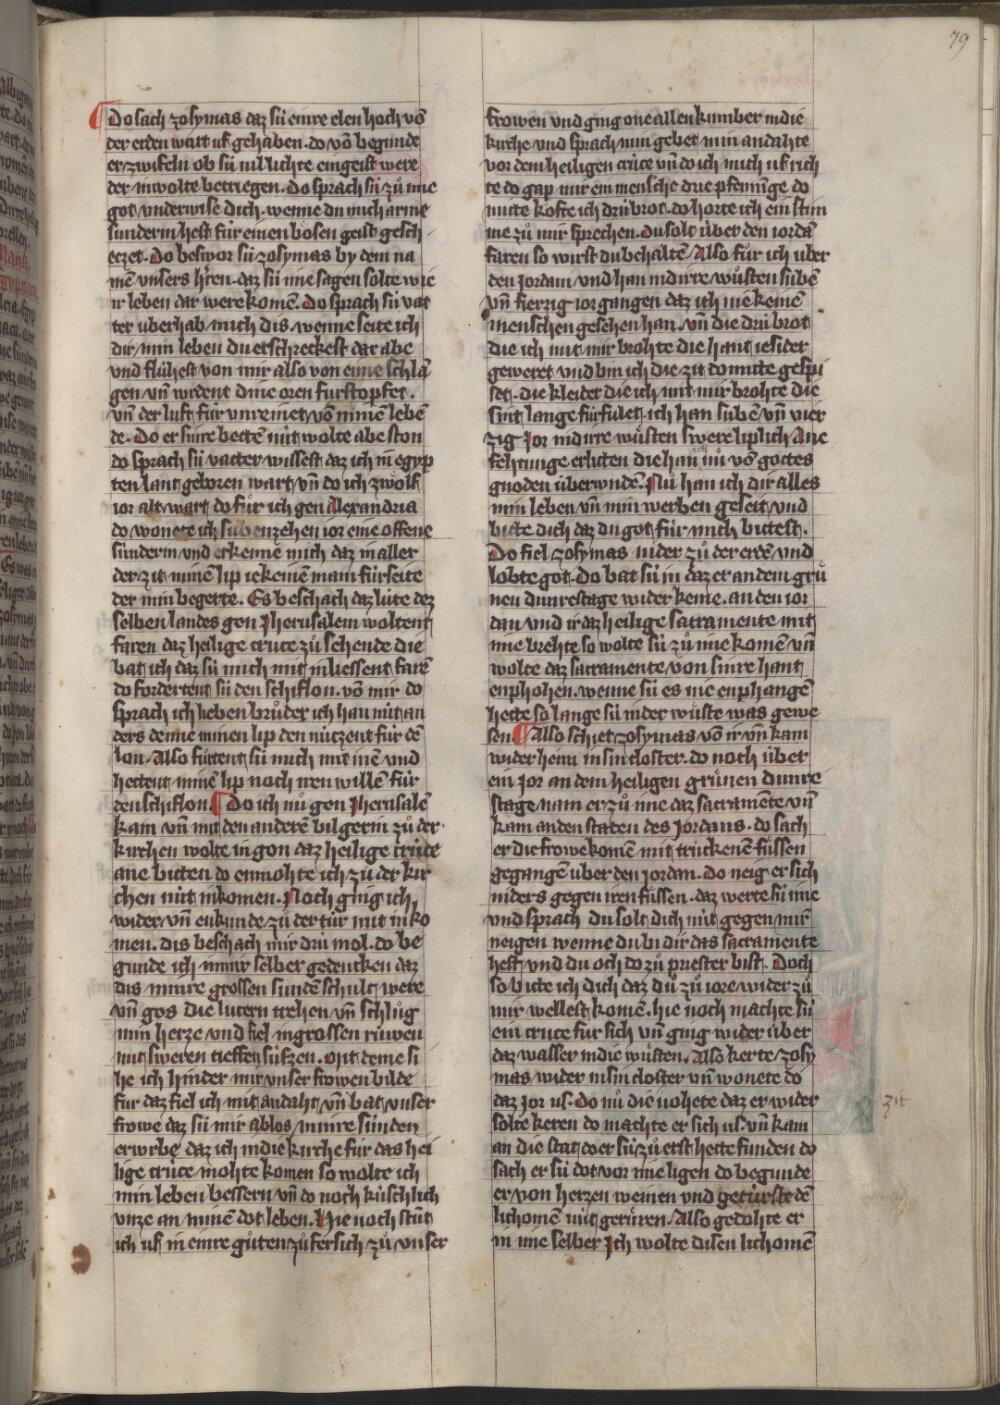 79
Do sach zosymas daz sú einre elen hoch vō
der erden wart uf gehaben. do vō begunde
er zwifeln ob sú úil lichte ein geist were
der in wolte betriegen. Do sprach sú zů ime
got underwise dich. wenne du mich arme
sunderin hest für einen bösen geist gesch
eczet. Do beswor sú zosymas by dem na
mē unsers hˀren. daz sú ime sagen solte wie
ir leben dar were komē. Do sprach sú vat
ter uberhab mich dis. wenne seite ich
dir min leben du erschreckest dar abe
und flühest von mir also von eime schlā
gen vn̄ wˀdent dine oren furstopfet.
vn̄ der luft für unreinet vō mime lebē
de. Do er sinre bettē nüt wolte abe ston
do sprach sú vatter wissest daz ich in egyp
ten lant geboren wart vn̄ do ich zwölf
ior alt wart do fůr ich gen Alexandria
do wonete ich subenzehen ior eine offene
sünderin und erkenne mich daz in aller
der zit minē lip ie keinem mann fürseite
der min begerte. Es beschach daz lüte dez
selben landes gon Jherusalem woltent
faren daz heilige crutce zů sehende die
bat ich daz sú mich mit in liessent farē
do fordertent sú den schiflon. vō mir do
sprach ich lieben brůder ich han nüt an
ders denne minen lip den nützent für dē
lon. Also fürtent sú mich mit inen und
hettent minē lip noch iren willē für
den schiflon. Do ich nů gen Jherusalē
kam vn̄ mit den anderē bilgerin zů der
kirchen wolte in gon daz heilige crütce
ane bitten do enmohte ich zů der kir
chen nüt in komen. Noch ging ich
wider vn̄ enkunde zů der tür nüt in ko
men. dis beschach mir drü mol. do be
gunde ich in mir selber gedencken daz
dis minre grossen sunden schult were
vn̄ gos die lutern trehen vn̄ schlůg
min herze und fiel in grossen rüwen
mit sweren tieffen süfzen. mit deme si
he ich hinder mir unser frowen bilde
fur daz fiel ich mit andaht vn̄ bat unser
frowe daz sú mir ablos minre sünden
erwrbe daz ich in die kirche für das hei
lige crüce mohte komen so wolte ich
min leben bessern vn̄ do noch küschlich
unze an minē dot leben. Hie noch stůnt
ich uf in einre gůten zůfersich zů unser
frowen und ging one allen kumber in die
kirche und sprach min gebet min andahte
vor dem heiligen crüce vn̄ do ich mich uf rich
te do gap mir ein mensche drie pfenninge do
mitte köfte ich drü brot. do horte ich ein stim
me zů mir sprechen. du solt über den iordā
faren so wirst du behaltē Also fůr ich über
den Jordan und han in dirre wůsten sübē
vn̄ fierzig ior gangen daz ich nie keinē
menschen gesehen han. vn̄ die drü brot
die ich mit mir brohte die hant ie sider
geweret und bin ich die zit do mitte gespi
set. die kleider die ich mit mir brohte die
sint lange für fulet. ich han süben vn̄ vier
zig Jor in dirre wůsten swere liplich Ane
fehtunge erlitten die han nů vō gottes
gnoden überwndē. Nů han ich dir alles
min leben vn̄ min werben geseit und
bitte dich daz du got für mich bittest.
Do fiel zosymas nider zů der erdē und
lobte got. Do bat sú in daz er an dem grů
nen dunrestage wider keme. an den ior
dan und ir daz heilige sacramente mit
ime brehte so wolte sú zů ime komē vn̄
wolte daz sacramente von sinre hant
enphohen. wenne sú es nie enphangē
hette so lange sú in der wůste was gewe
sen. Also schiet zosymas vō ir vn̄ kam
wider heim in sin closter. do noch über
ein jor an dem heiligen grünen dunre
stage nam er zů ime daz sacramēte vn̄
kam an den staten des Jordans. do sach
er die frowe komē mit truckenē füssen
gegangē über den Jordan. do neig er sich
niders gegen iren füssen. daz werte sú ime
und sprach du solt dich nüt gegen mir
neigen wenne du bi dir das sacramente
hest und du och do zů priester bist. Doch
so bitte ich dich daz dů zů iore wider zů
mir wellest komē. hie noch machte sú
ein crutce für sich vn̄ ging wider über
daz wasser in die wůsten. Also kerte zosy
mas wider in sin closter vn̄ wonete do
daz Jor us. Do nů die nohete daz er wider
zit
solte keren do machte er sich us. vn̄ kam
an die stat do er sú zů erst hette funden do
sach er sú dot vor ime ligen do begunde
er von herzen weinen und getürste dē
lichomē nüt gerüren. Also gedohte er
in ime selber Ich wolte disen lichomē